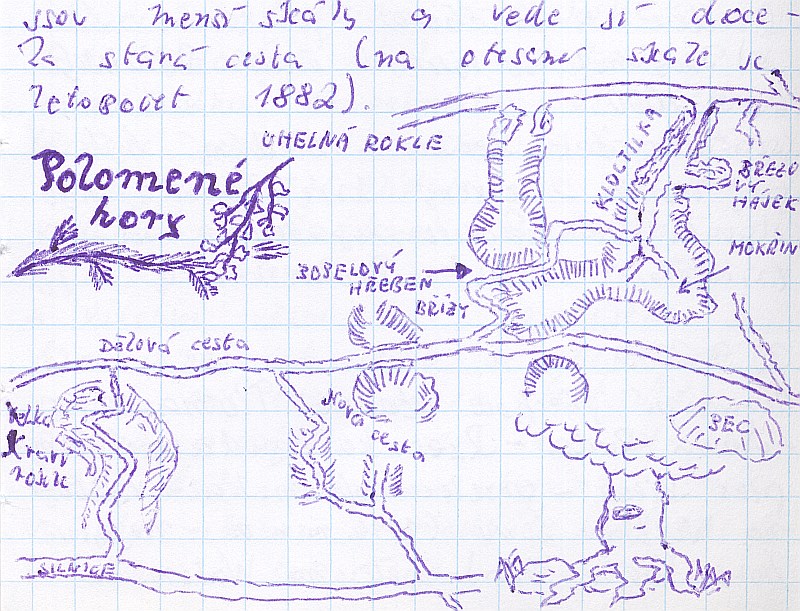 jsou menší skály a vede jí doce-
la stará cesta (na otesané skále je
letopočet 1882).
UHELNÁ ROKLE
Polomené
hory
KLOCTILKA
BŘEZO
VÝ
HÁJEK
MOKŘIN
BOBELOVÝ
HŘEBEN
BŘÍZY
Dělová cesta
Velká
Kraví
rokle
Nová
cesta
BEC
SILNICE